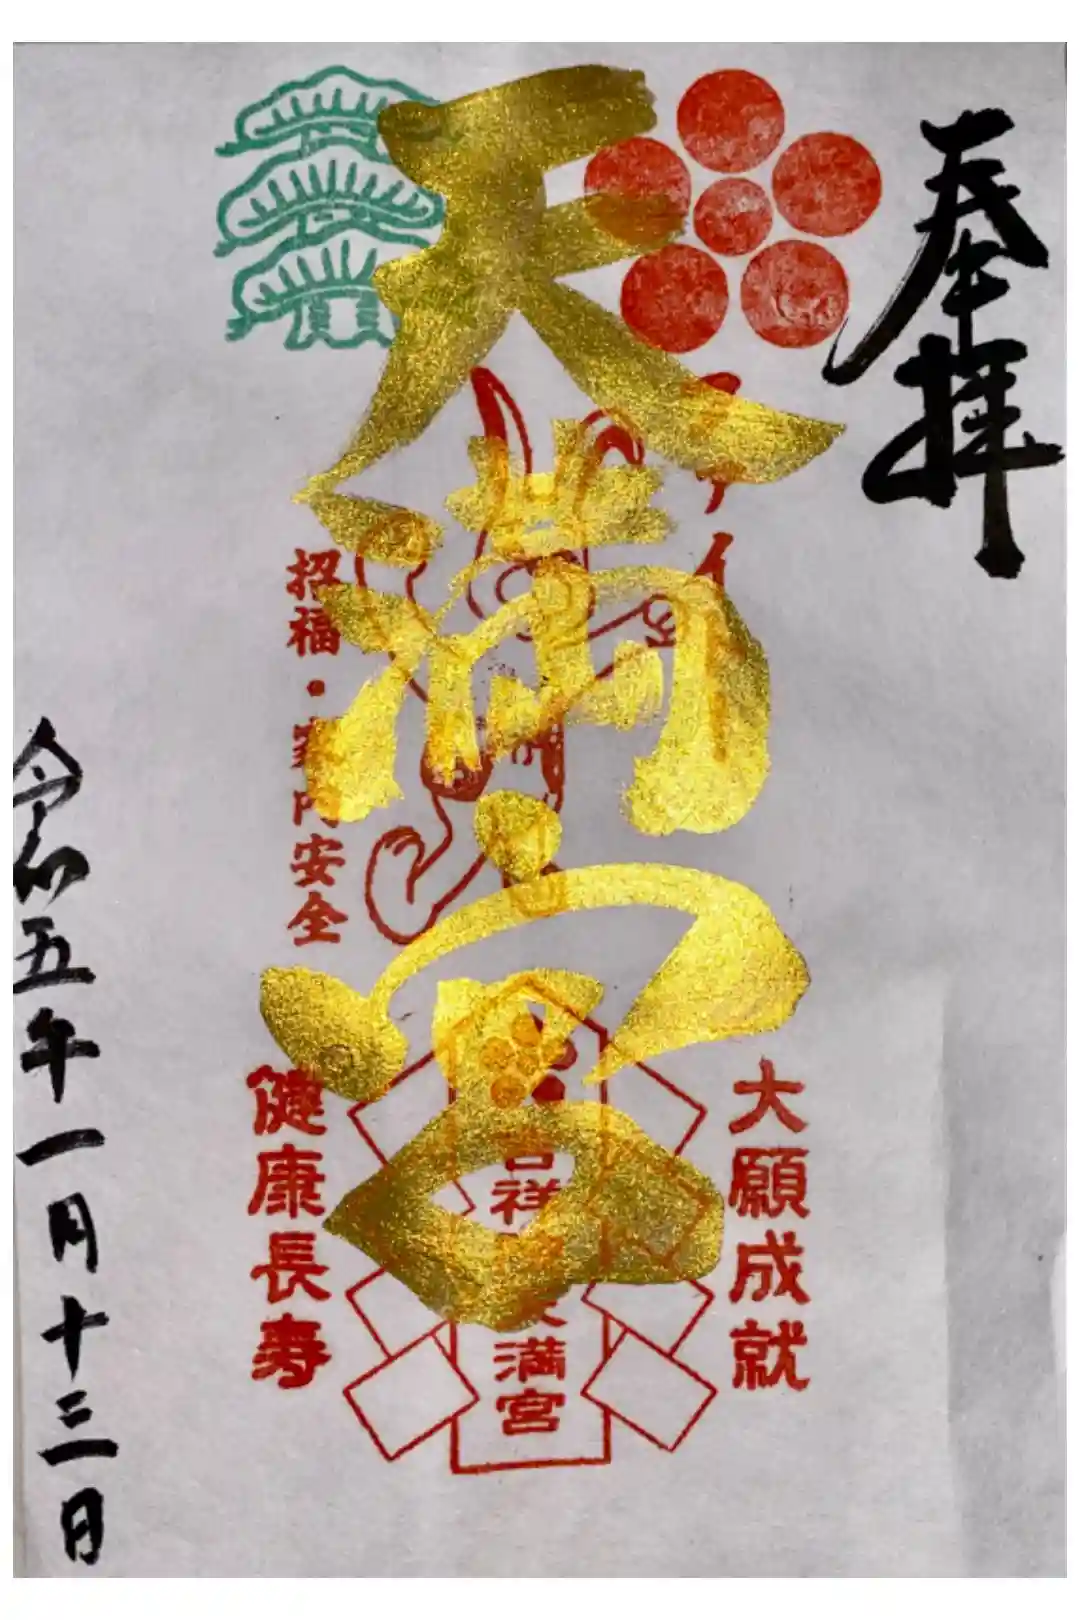 奉拝
天満宮
大願成就
招福・家内安全
健康長寿
天満宮
令和五年一月十三日